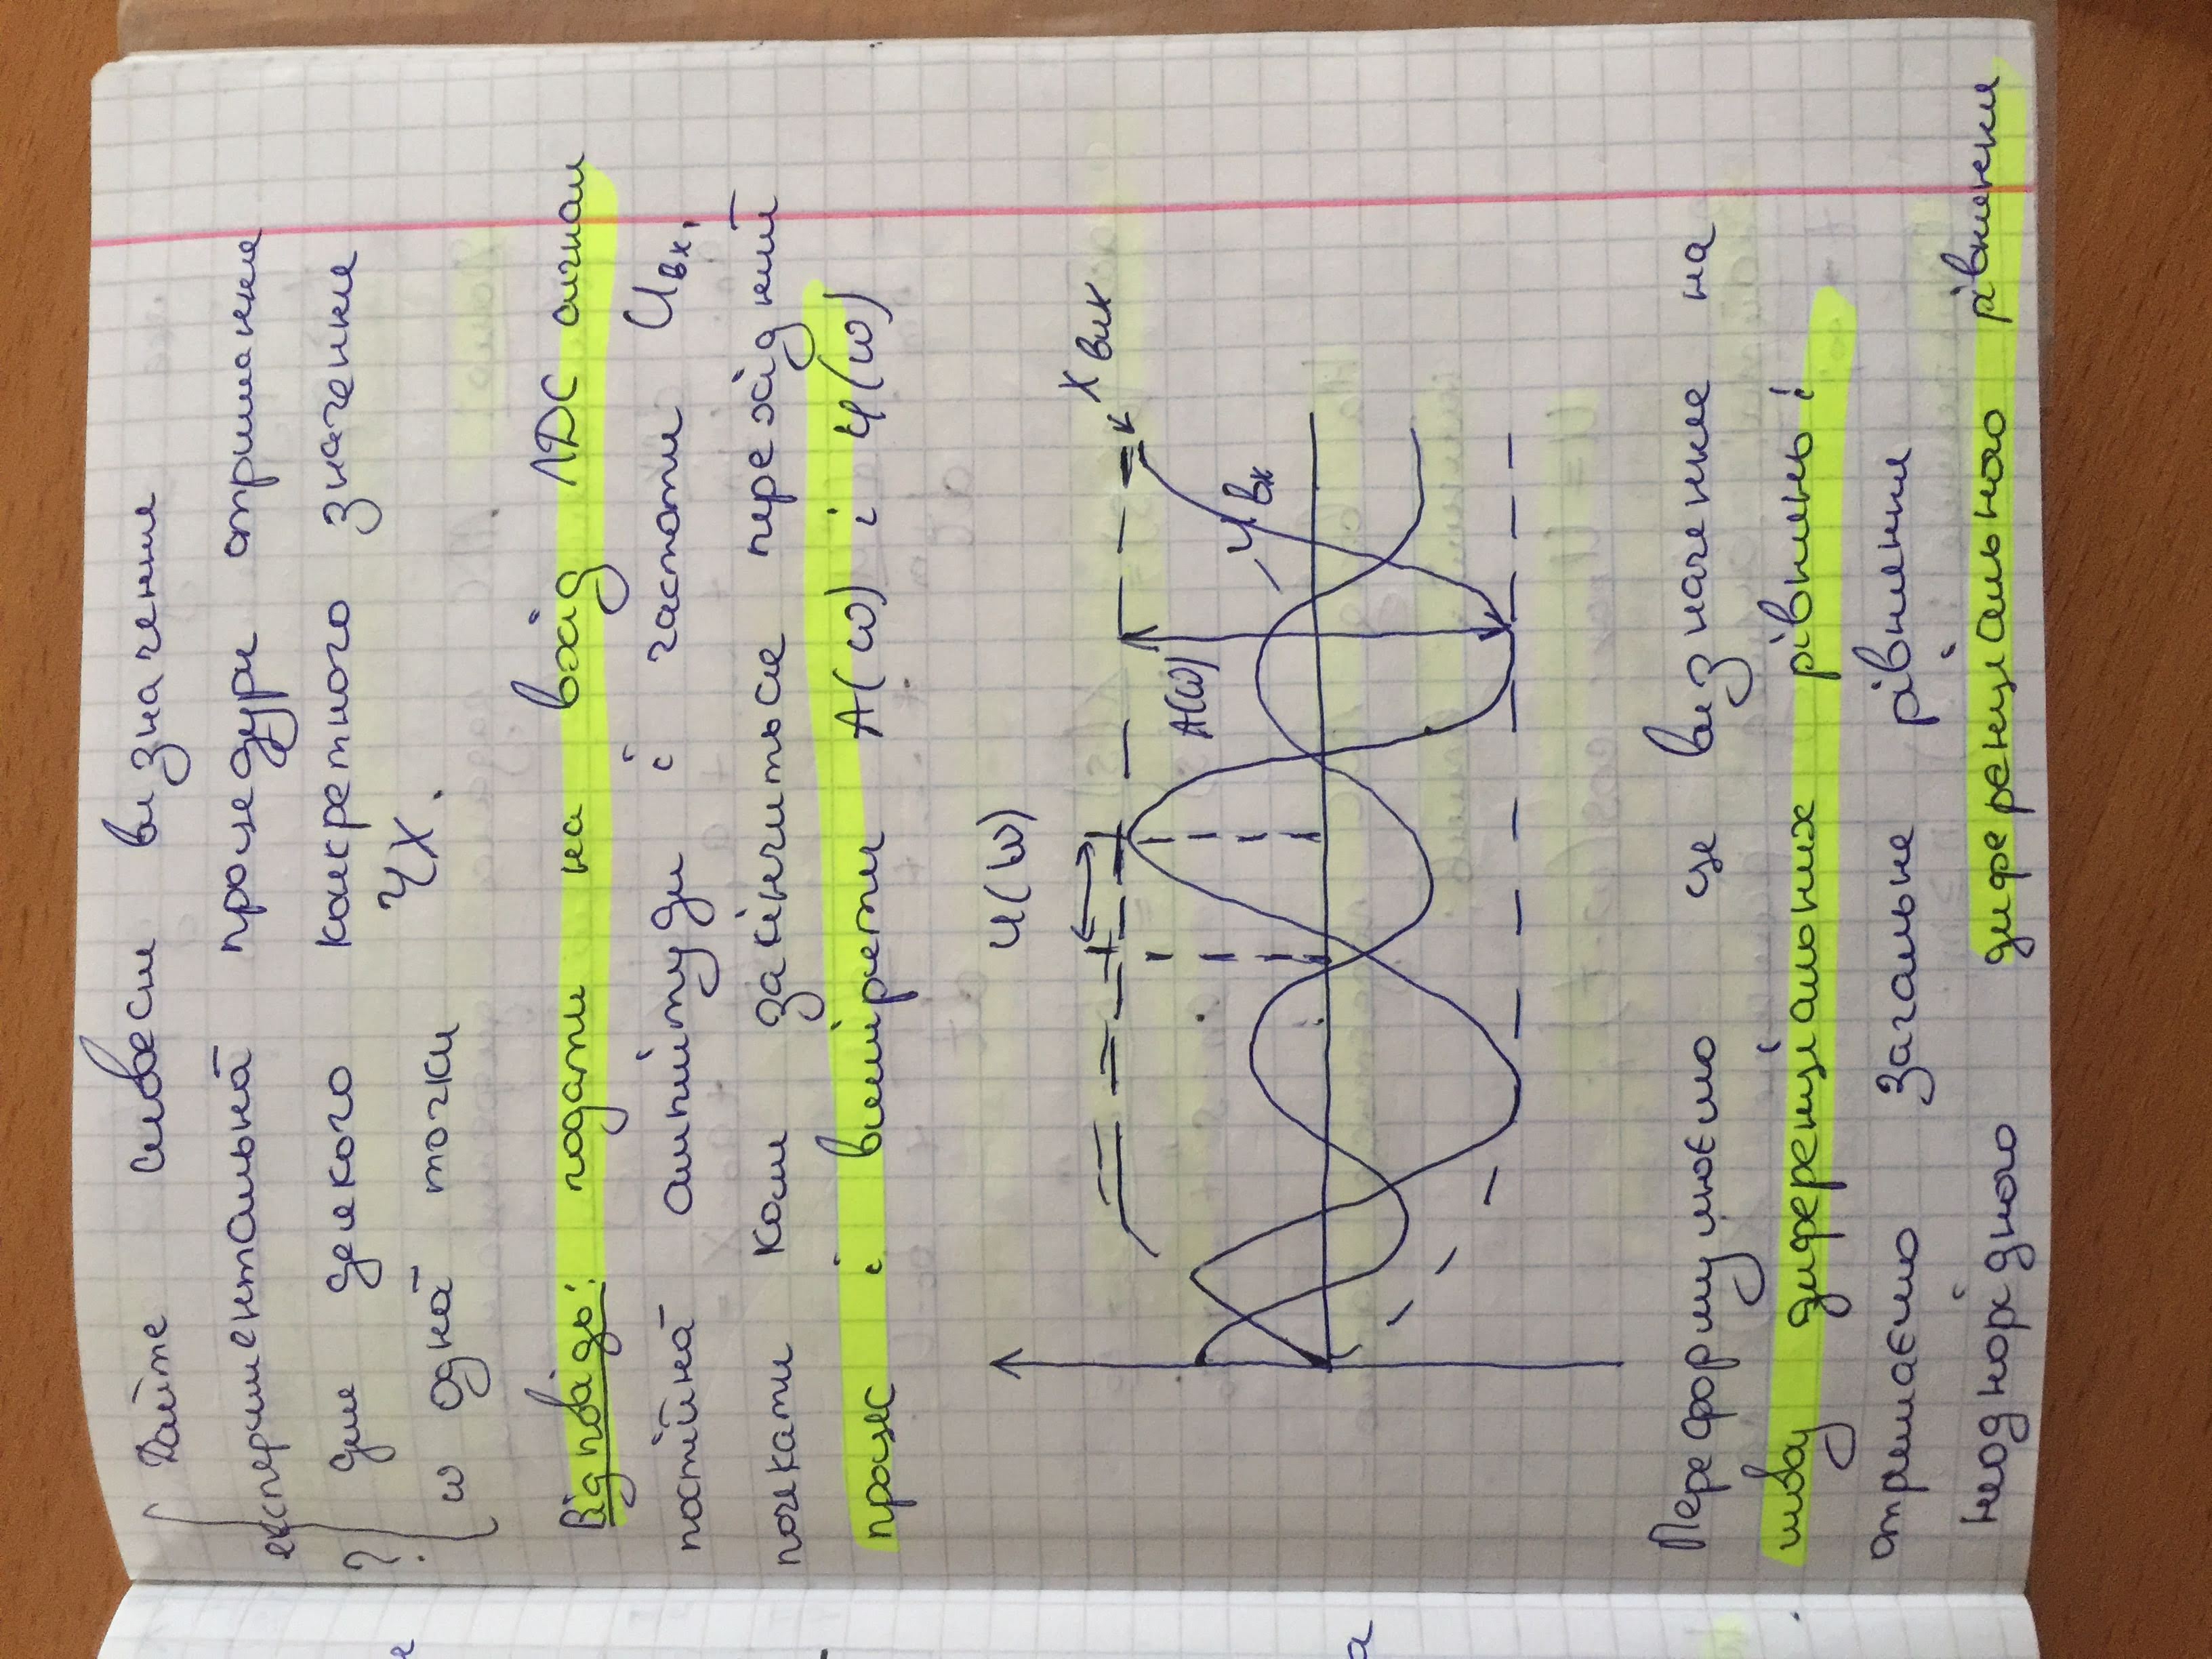 Дайте словесне визначення
експериментальної процедури отримання
для деякого конкретного значення
ω одної точки ЧХ.
?
Відповідь: подати на вхід ЛДС сигнал
постійної амплітуди і частоти Uвх,
почекати коли закінчиться перехідний
процес і виміряти A(ω) і φ(ω)
φ(ω)
Xвих
A(ω)
Uвх
Переформулюємо це визначення на
мову диференціальних рівнянь:
отримаємо загальне рівняння
неоднорідного диференціального рівняння